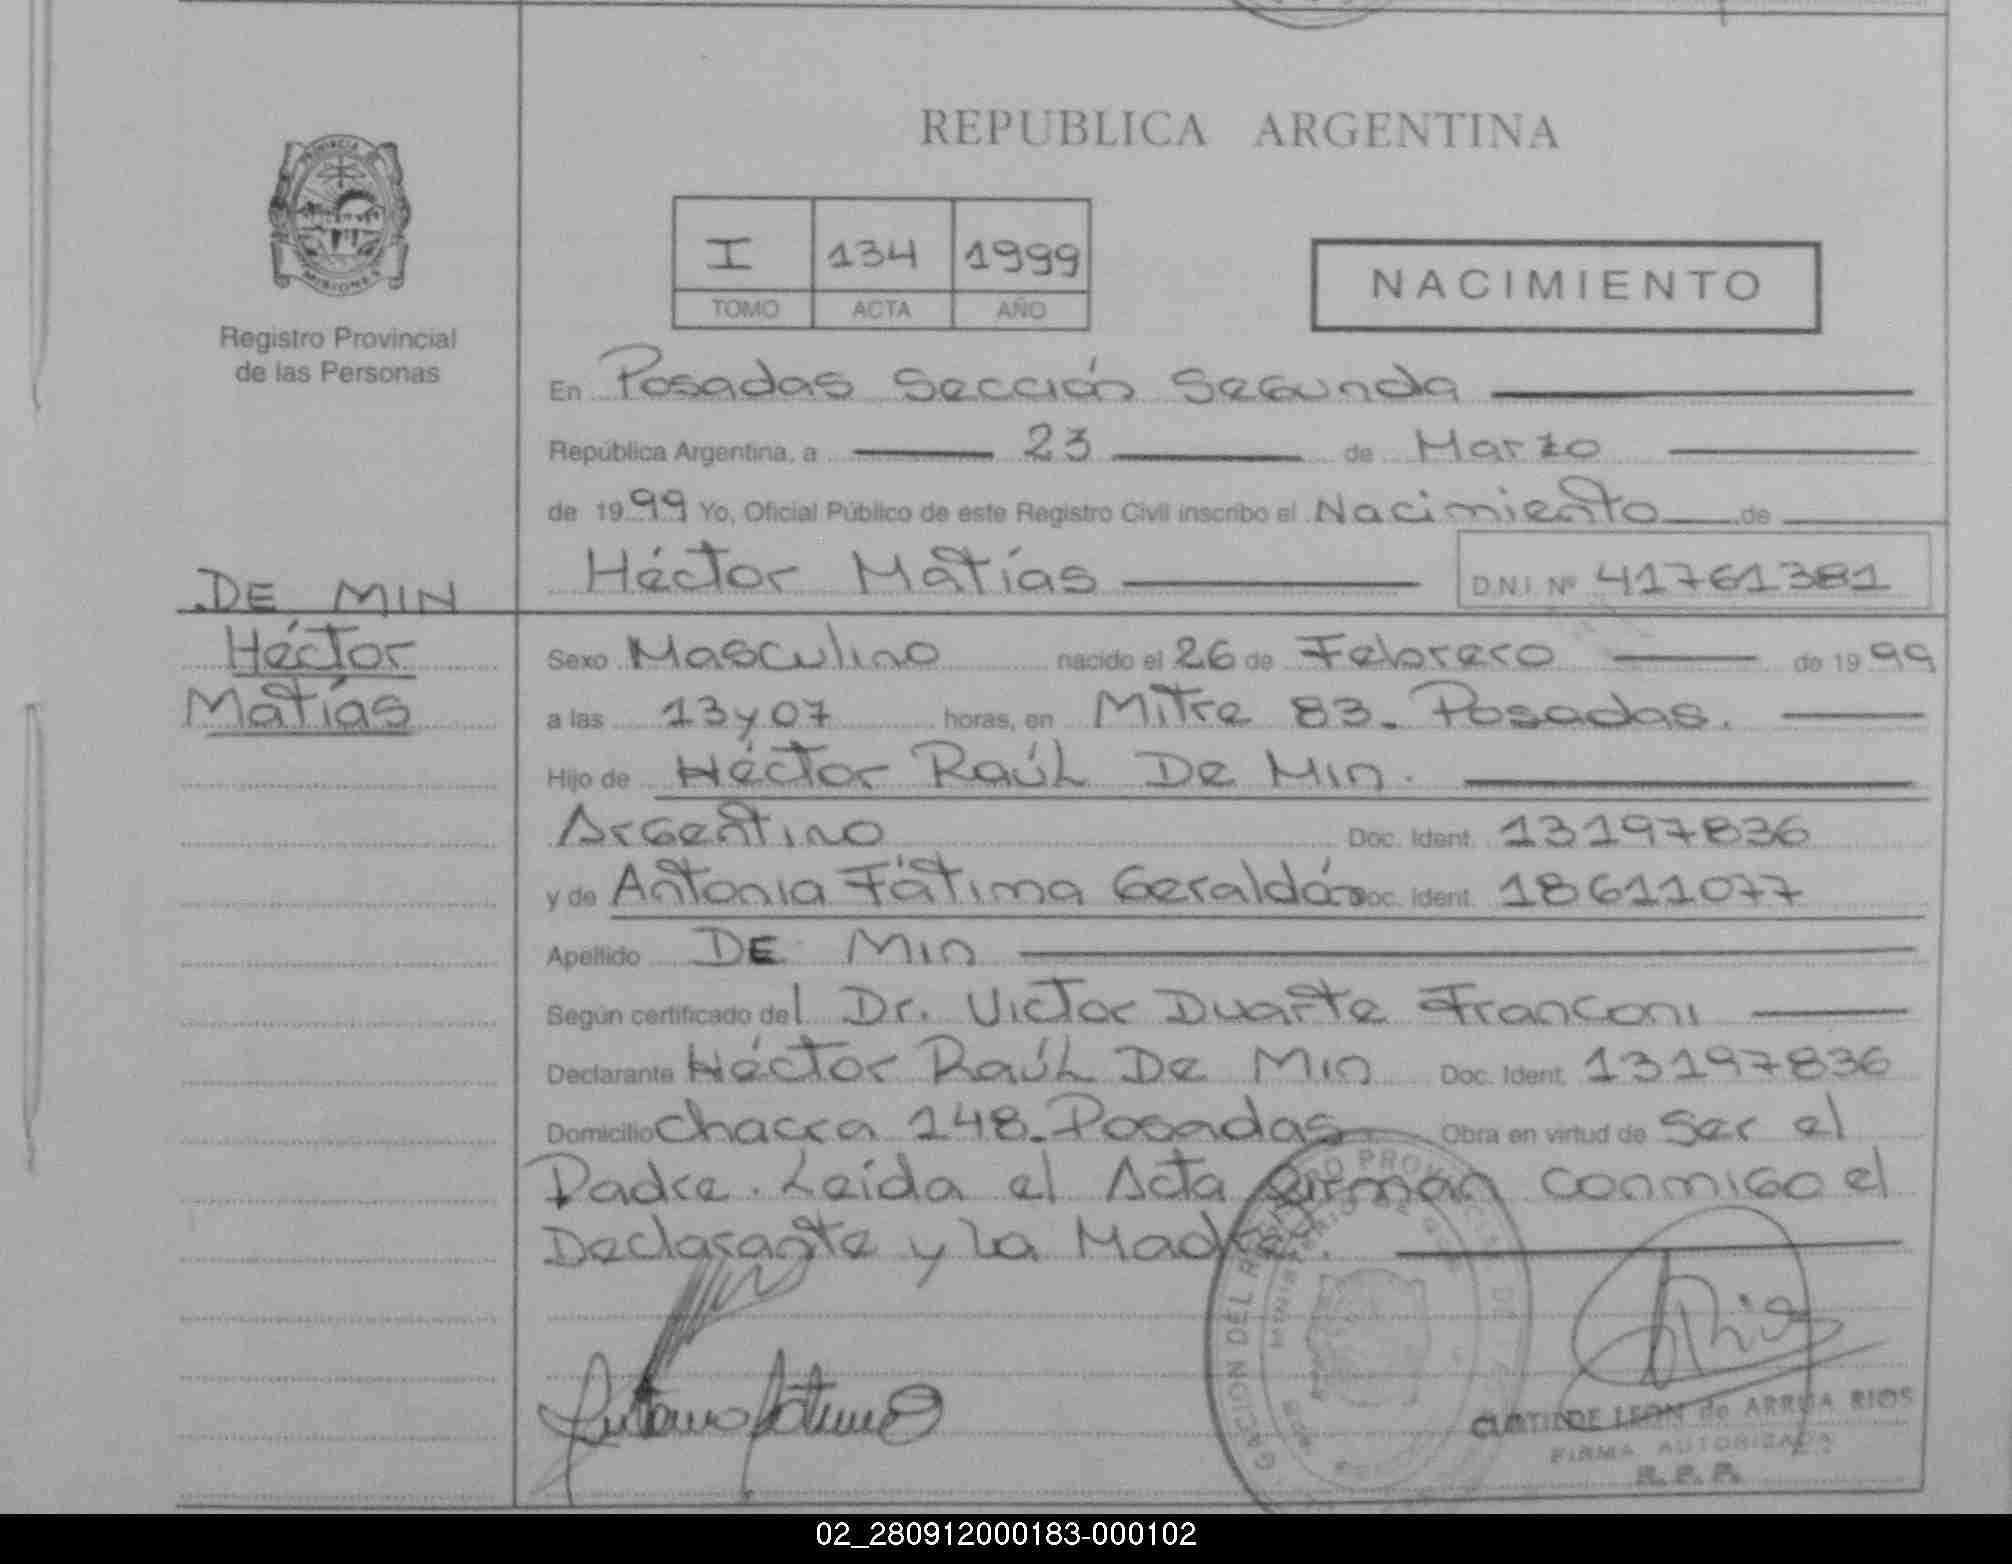 REPUBLICA ARGENTINA
PROVINCIA DE
MISIONES
Registro Provincial
de las Personas
I 134 1999
TOMO ACTA AÑO
NACIMIENTO
En Posadas Sección Segunda
República Argentina, a 23 de Marzo
de 1999 Yo, Oficial Público de este Registro Civil inscribo el Nacimiento de
Héctor Matías D.N.I. Nº 41761381
DE MIN
Héctor
Matías
Sexo Masculino nacido el 26 de Febrero de 1999
a las 13 y 07 horas, en Mitre 83. Posadas.
Hijo de Héctor Raúl De Min.
Argentino Doc. Ident. 13197836
y de Antonia Fátima Geraldo Doc. Ident. 18611077
Apellido DE MIN
Según certificado del Dr. Victor Duarte Franconi
Declarante Héctor Raúl De Min Doc. Ident. 13197836
Domicilio Chacra 148. Posadas Obra en virtud de Ser el
Padre. Leída el Acta Firman conmigo el
Declarante y La Madre.
CLOTILDE LEON de ARRUA RIOS
FIRMA AUTORIZADA
R. P. P.
02_280912000183-000102